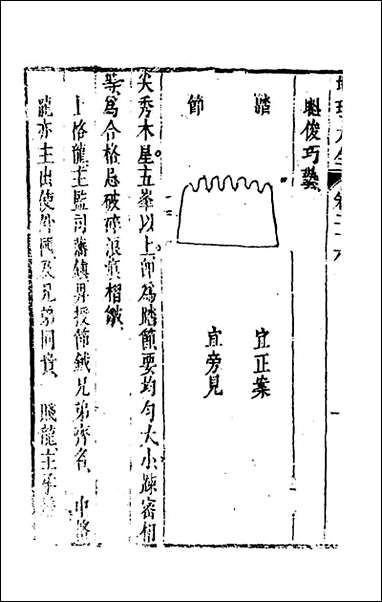 地理大全 卷二十六
魁俊巧
踏節
宜正案
宜旁見
尖秀木星五峯以上即為踏節要均勻大小疎密相
等為合格忌破碎浪痕摺皺
上格龍主監司藩鎮昇授節鉞兄弟齊名 中格
龍亦主出使外國及兄弟同貴 賤龍主